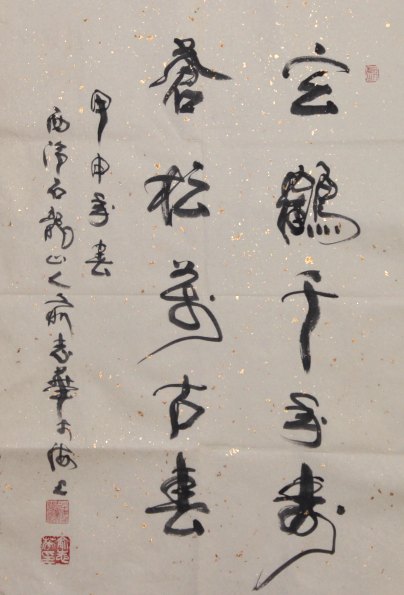 玄鶴千年壽
蒼松萬古春
甲申年書
西泠石龍山人俞志華於海上